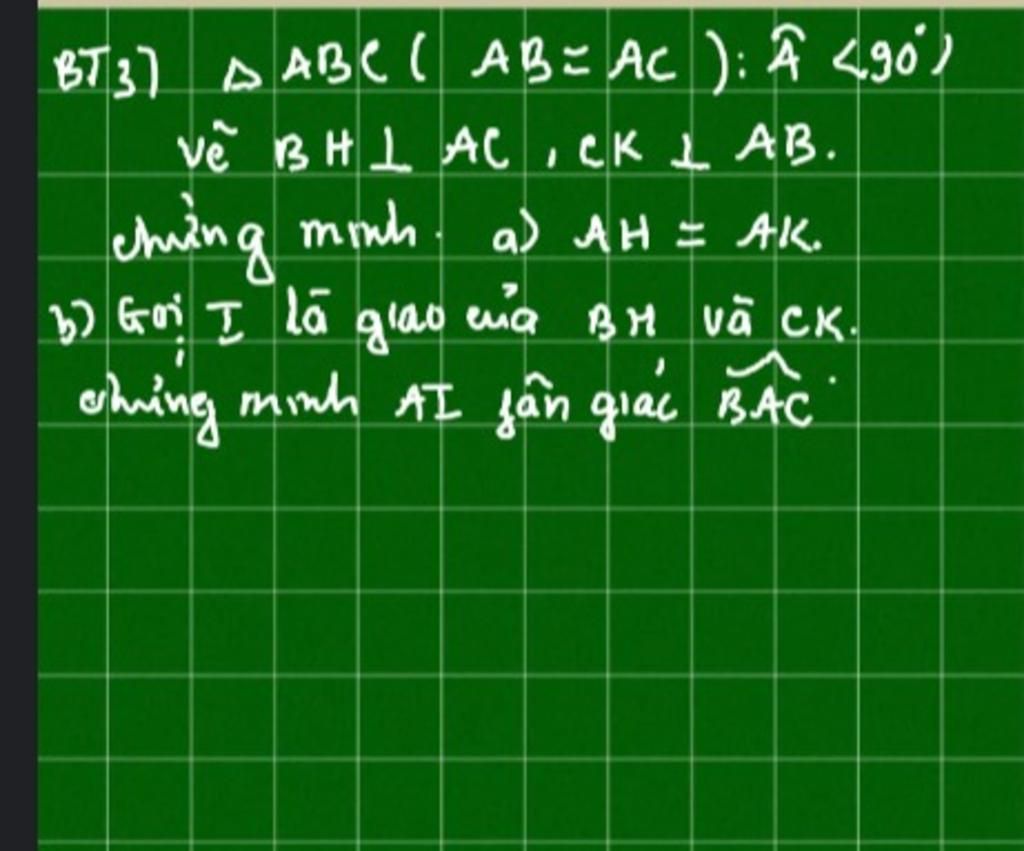 BT3) Δ ABC ( AB = AC ): Â < 90°)
vẽ BH ⊥ AC, CK ⊥ AB.
chứng minh. a) AH = AK.
b) Gọi I là giao của BH và CK.
chứng minh AI fân giác BAC.